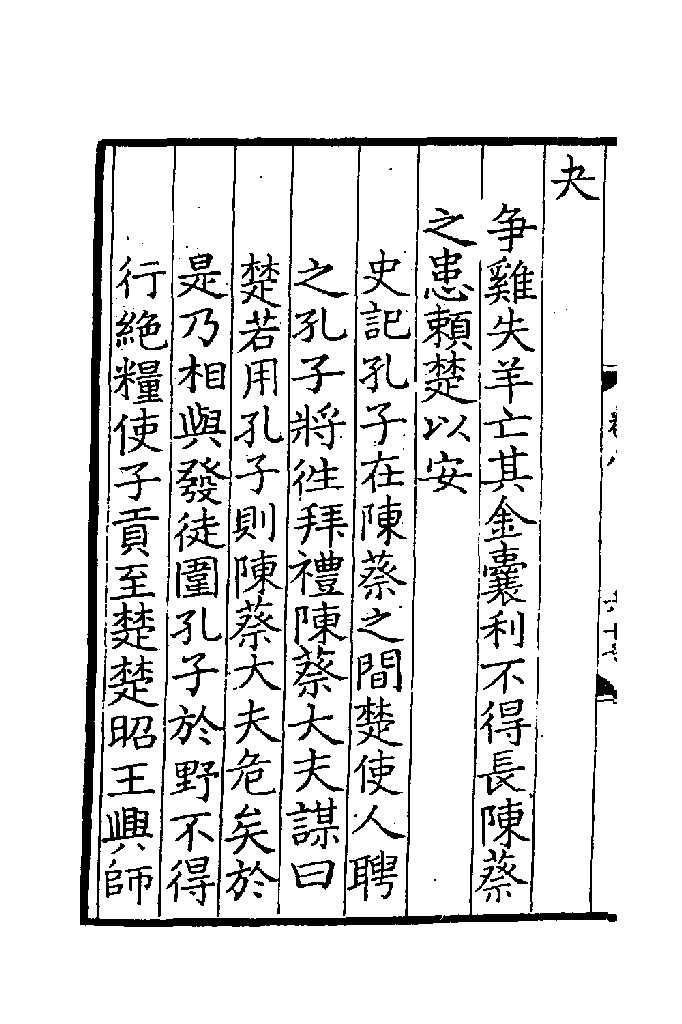 夬
争雞失羊亡其金囊利不得長陳蔡
之患賴楚以安
史記孔子在陳蔡之間楚使人聘
之孔子將徃拜禮陳蔡大夫謀曰
楚若用孔子則陳蔡大夫危矣於
是乃相與發徒圍孔子於野不得
行絶糧使子貢至楚楚昭王興師